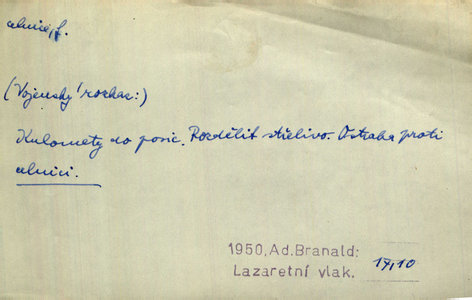 celnice, f.
(Vojenský rozkaz:)
Kulomety do posic. Rozdělit střelivo. Ostraha proti
celnici.
1950, Ad. Branald:
Lazaretní vlak.